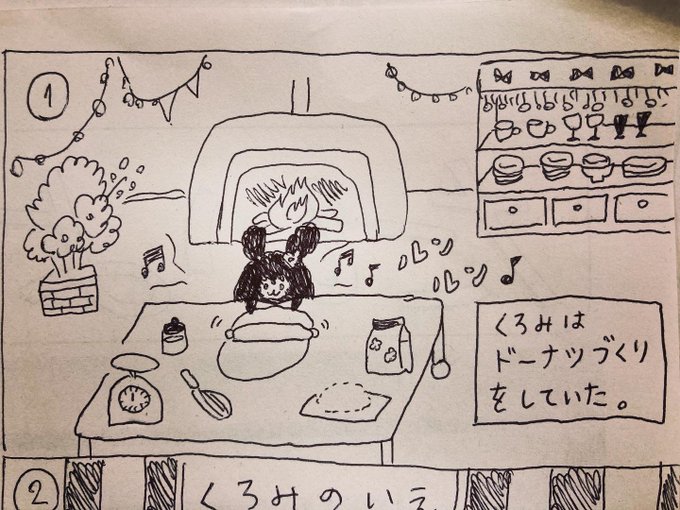 ①
ルン
ルン
くろみは
ドーナツづくり
をしていた。
②
くろみのいえ